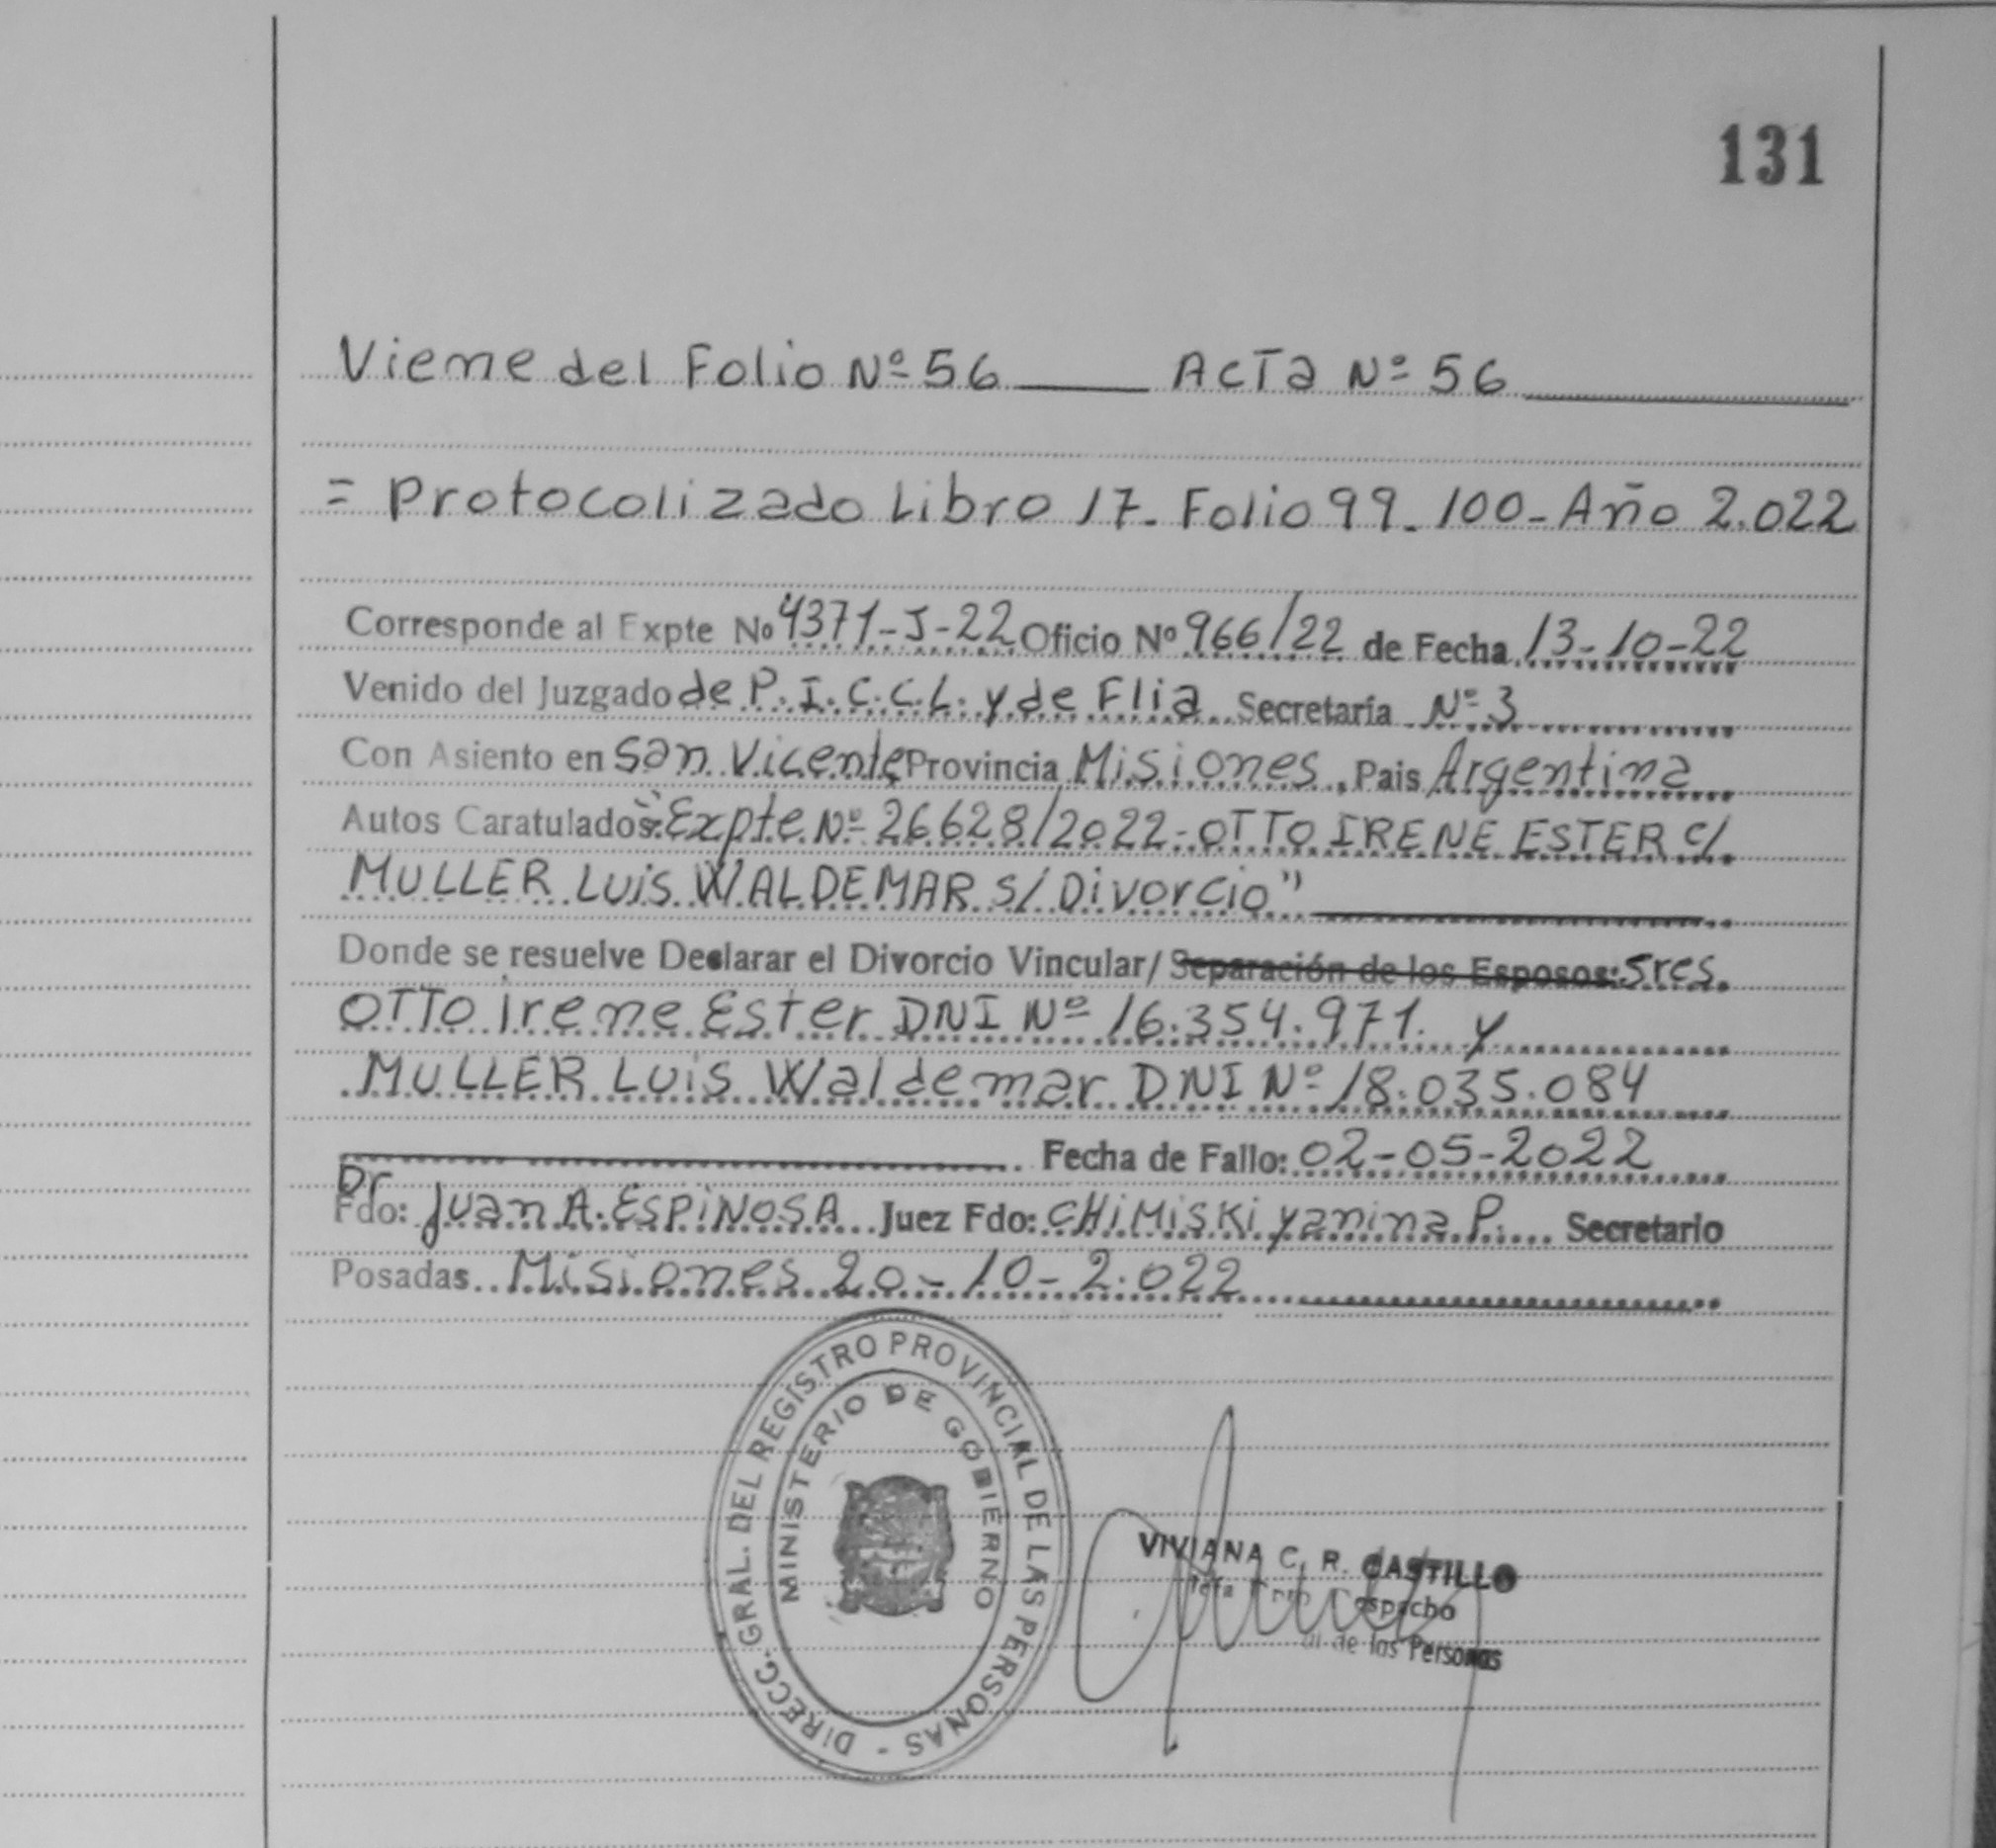 131
Viene del Folio Nº 56 ACTA Nº 56
= Protocolizado Libro 17. Folio 99. 100 - Año 2.022
Corresponde al Expte Nº 4371-J-22 Oficio Nº 966/22 de Fecha 13-10-22
Venido del Juzgado de P.I.C.C.L. y de Flia Secretaría Nº 3
Con Asiento en San Vicente Provincia Misiones, Pais Argentina
Autos Caratulados: "Expte Nº 26628/2022 - OTTO IRENE ESTER C/
MULLER LUIS WALDEMAR S/ Divorcio"
Donde se resuelve Declarar el Divorcio Vincular/ Separación de los Esposos: Sres.
OTTO Irene Ester DNI Nº 16.354.971. y
MULLER LUIS Waldemar DNI Nº 18.035.084
Fecha de Fallo: 02-05-2022
Dr
Fdo: Juan A. ESPINOSA Juez Fdo: CHIMISKI Yanina P. Secretario
Posadas Misiones 20-10-2.022
DIRECC. GRAL. DEL REGISTRO PROVINCIAL DE LAS PERSONAS -
MINISTERIO DE GOBIERNO
VIVIANA C. R. CASTILLO
Jefa Despacho
de las Personas